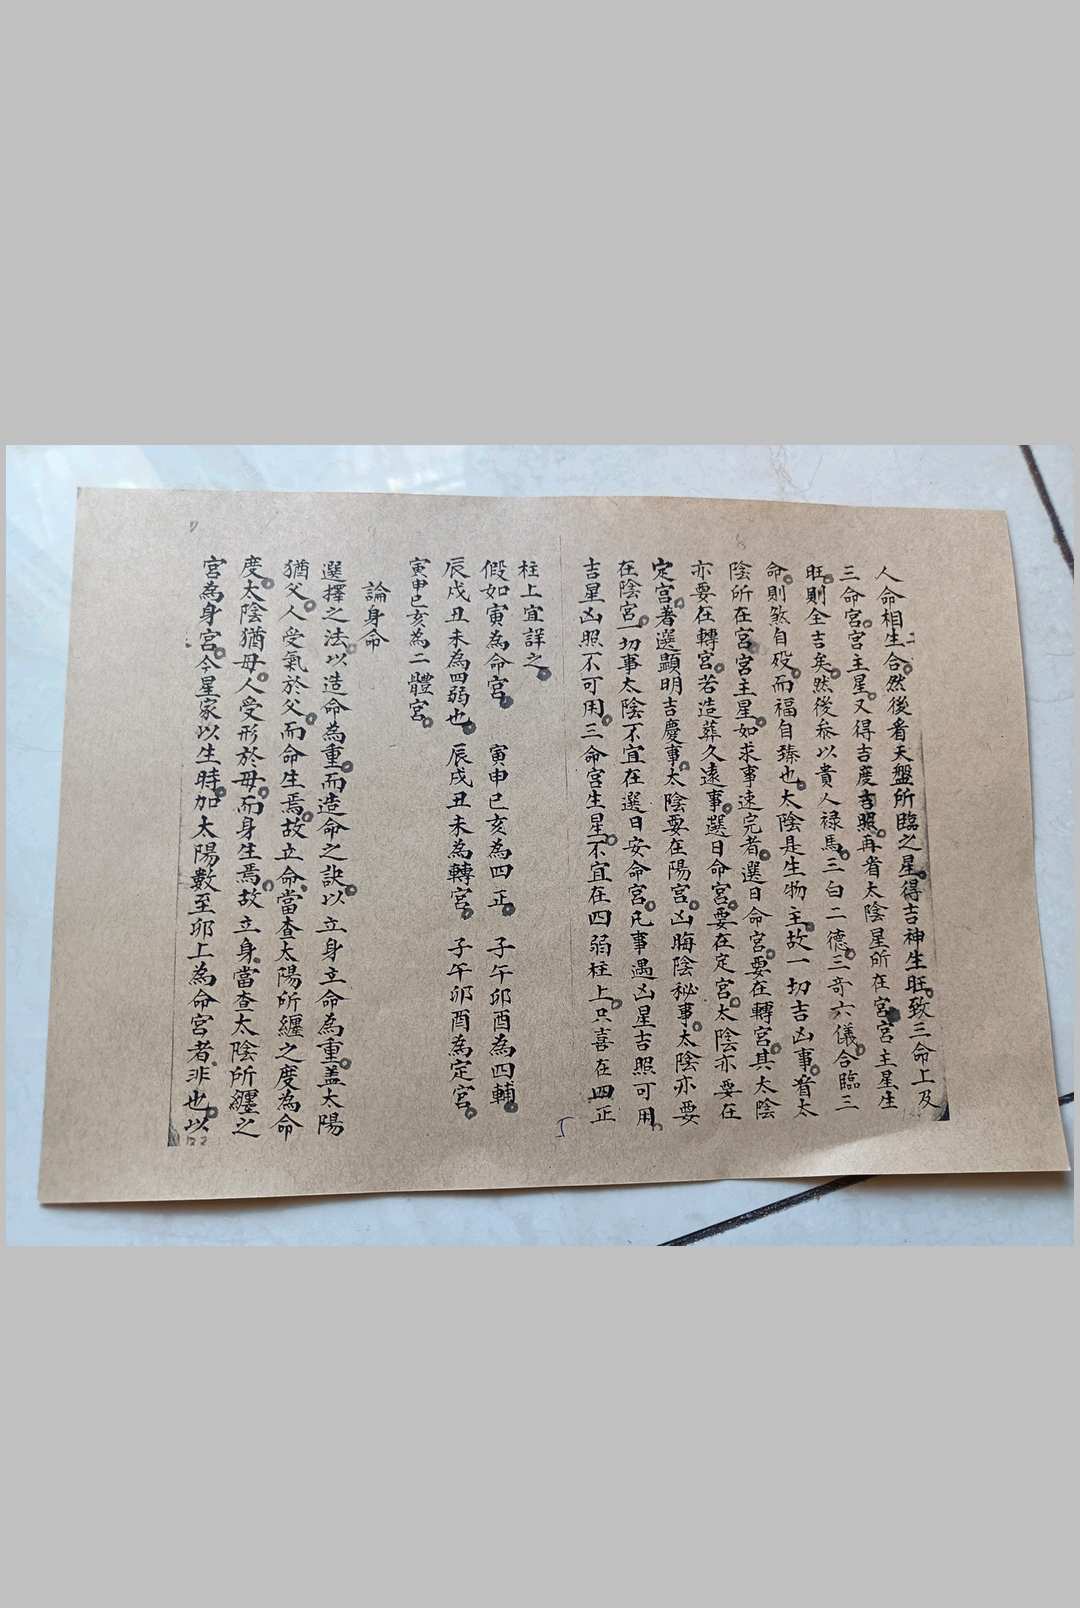 人命相生合然後看天盤所臨之星得吉神生旺致三命上及
三命宮宮主星又得吉度吉照再看太陰星所在宮宮主星生
旺則全吉矣然後叅以貴人祿馬三白二德三奇六儀合臨三
命則煞自歿而福自臻也太陰是生物主故一切吉凶事看太
陰所在宮宮主星如求事速完者選日命宮要在轉宮其太陰
亦要在轉宮若造葬久遠事選日命宮要在定宮太陰亦要在
定宮若選顯明吉慶事太陰要在陽宮凶晦陰秘事太陰亦要
在陰宮一切事太陰不宜在選日安命宮凡事遇凶星吉照可用
吉星凶照不可用三命宮生星不宜在四弱柱上只喜在四正
柱上宜詳之
假如寅為命宮 寅申巳亥為四正 子午卯酉為四輔
辰戌丑未為四弱也 辰戌丑未為轉宮 子午卯酉為定宮
寅申巳亥為二體宮
論身命
選擇之法以造命為重而造命之訣以立身立命為重盖太陽
猶父人受氣於父而命生焉故立命當查太陽所纏之度為命
度太陰猶母人受形於母而身生焉故立身當查太陰所纏之
宮為身宮今星家以生時加太陽數至卯上為命宮者非也以